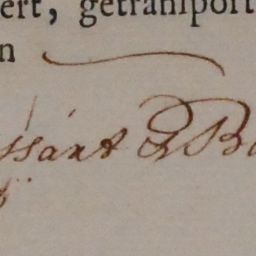 ert, getranſport
n
ssant & Bo